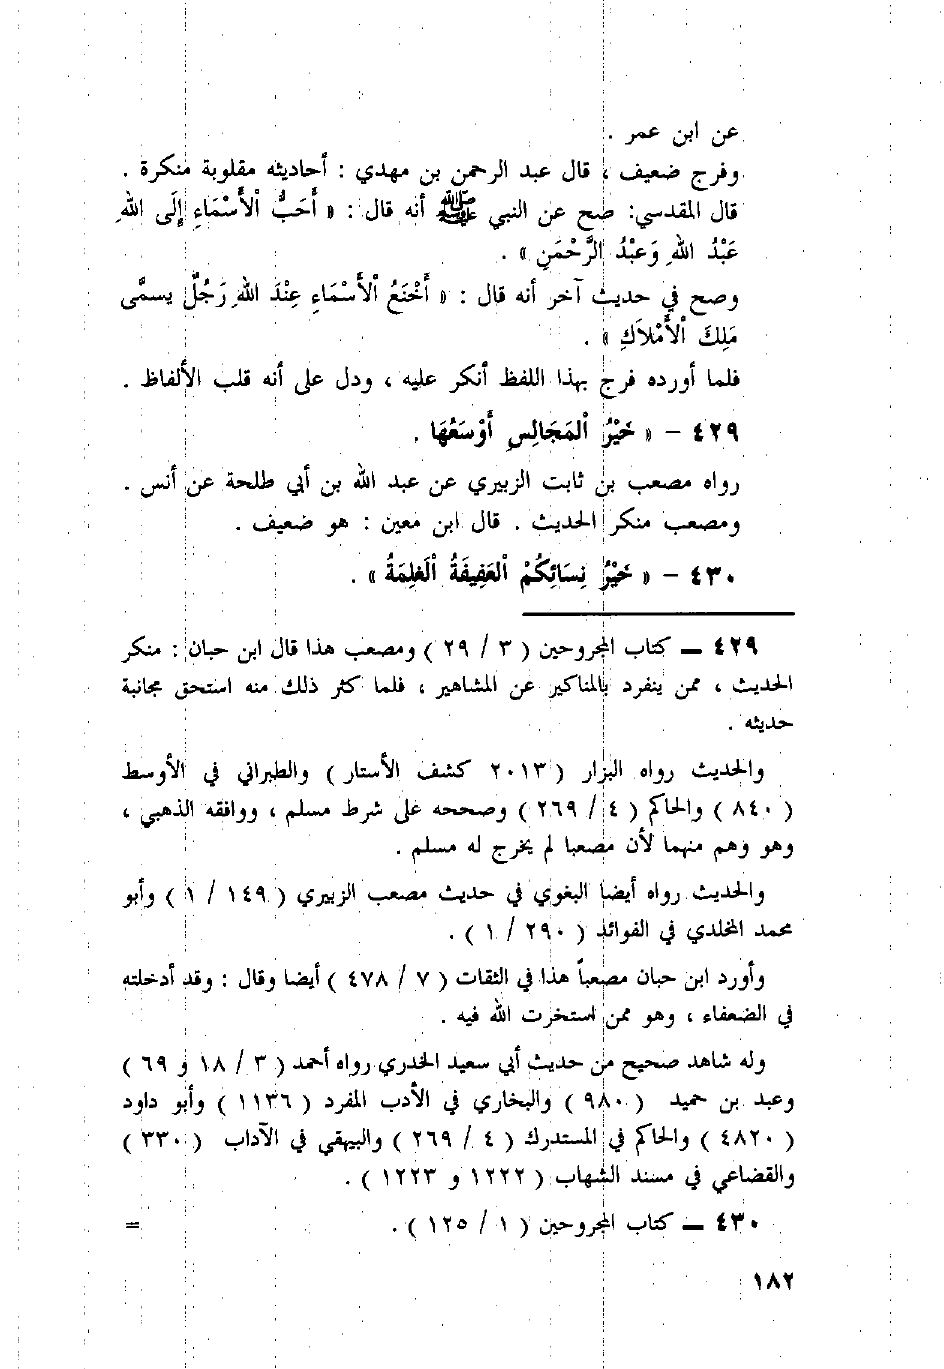 عن ابن عمر .
وفرج ضعيف ، قال عبد الرحمن بن مهدي : أحاديثه مقلوبة منكرة .
قال المقدسي: صح عن النبي ﷺ أنه قال : « أَحَبُّ ٱلْأَسْمَاءِ إِلَى اللهِ
عَبْدُ اللهِ وَعَبْدُ الرَّحْمَنِ » .
وصح في حديث آخر أنه قال : « أَخْنَعُ ٱلْأَسْمَاءِ عِنْدَ اللهِ رَجُلٌ يسمَّى
مَلِكَ ٱلْأَمْلاَكِ » .
فلما أورده فرج بهذا اللفظ أنكر عليه ، ودل على أنه قلب الألفاظ .
٤٢٩ – « خَيْرُ ٱلمَجَالِسِ أَوْسَعُهَا .
رواه مصعب بن ثابت الزبيري عن عبد الله بن أبي طلحة عن أنس .
ومصعب منكر الحديث . قال ابن معين : هو ضعيف .
٤٣٠ – « خَيْرُ نِسَائِكُمْ ٱلعَفِيفَةُ ٱلغَلِمَةُ » .
٤٢٩ ــ كتاب المجروحين ( ٣ / ٢٩ ) ومصعب هذا قال ابن حبان : منكر
الحديث ، ممن ينفرد بالمناكير عن المشاهير ، فلما كثر ذلك منه استحق مجانبة
حديثه .
والحديث رواه البزار ( ٢٠١٣ كشف الأستار ) والطبراني في الأوسط
( ٨٤٠ ) والحاكم ( ٤ / ٢٦٩ ) وصححه على شرط مسلم ، ووافقه الذهبي ،
وهو وهم منهما لأن مصعبا لم يخرج له مسلم .
والحديث رواه أيضا البغوي في حديث مصعب الزبيري ( ١٤٩ / ١ ) وأبو
محمد المخلدي في الفوائد ( ٢٩٠ / ١ ) .
وأورد ابن حبان مصعباً هذا في الثقات ( ٧ / ٤٧٨ ) أيضا وقال : وقد أدخلته
في الضعفاء ، وهو ممن استخرت الله فيه .
وله شاهد صحيح من حديث أبي سعيد الخدري رواه أحمد ( ٣ / ١٨ و ٦٩ )
وعبد بن حميد ( ٩٨٠ ) والبخاري في الأدب المفرد ( ١١٣٦ ) وأبو داود
( ٤٨٢٠ ) والحاكم في المستدرك ( ٤ / ٢٦٩ ) والبيهقي في الآداب ( ٣٣٠ )
والقضاعي في مسند الشهاب ( ١٢٢٢ و ١٢٢٣ ) .
٤٣٠ ــ كتاب المجروحين ( ١ / ١٢٥ ) . =
١٨٢